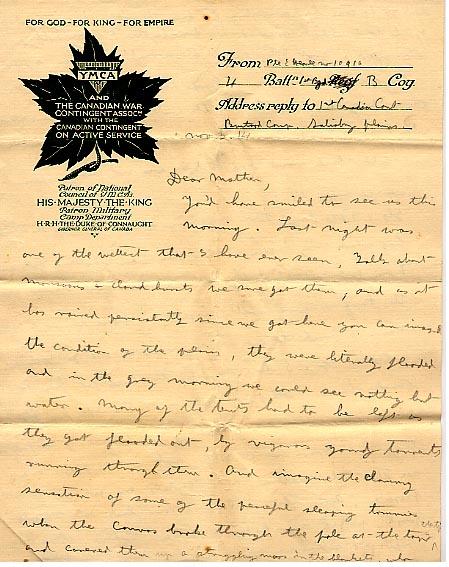 FOR GOD - FOR KING - FOR EMPIRE
YMCA
AND
THE CANADIAN WAR
CONTINGENT ASSOCN
WITH THE
CANADIAN CONTINGENT
ON ACTIVE SERVICE
Patron of National
Council of Y.M.C.A's.
HIS·MAJESTY·THE·KING
Patron Military
Camp Department
H·R·H·THE·DUKE·OF·CONNAUGHT
GOVERNOR GENERAL OF CANADA
From Pte
4 Battn 1st B Coy
Address reply to 1st Canadian Cont
Bustard Camp, Salisbury plains.
Nov. 5. 14
Dear Mother,
You'd have smiled to see us this
morning. Last night was
one of the wettest that I have ever seen, Talk about
monsoons & cloud bursts we sure got them, and as it
has rained persistently since we got here you can imagine
the condition of the plains, they were literally flooded
and in the grey morning we could see nothing but
water. Many of the tents had to be left as
they got flooded out, by vigorous young torrents
running through them. And imagine the clammy
sensation of some of the peaceful sleeping tommies
when the canvas broke through the pole at the top
and covered them up a struggling mass in the blankets, who